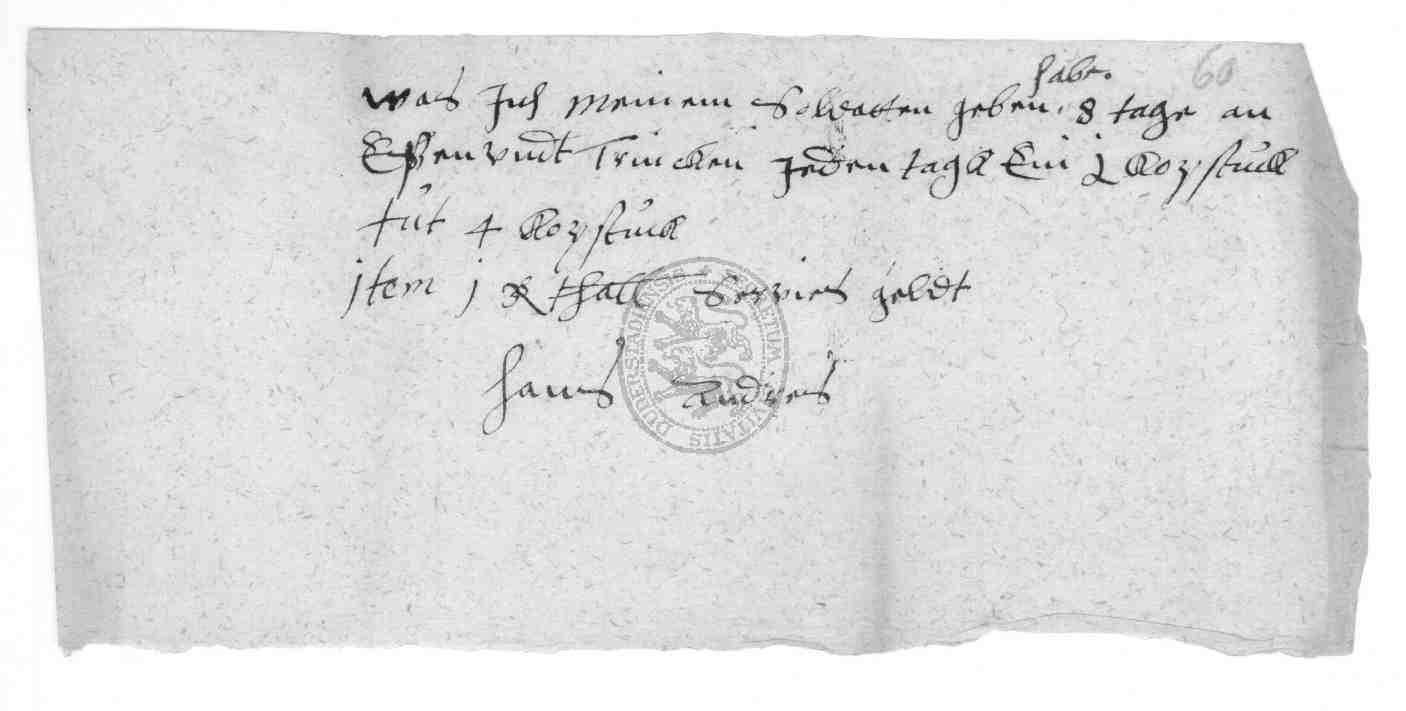 60
habe.
was Ich meinem Soldatten geben, 8 tage an
Eßen vndt Trincken Jeden tagk Ein ½ kopstuck
tut 4 kopstuck
Item j R thall Servies geldt
Hans Andres
SIGILLUM CIVITATIS DUDERSTADIENSIS